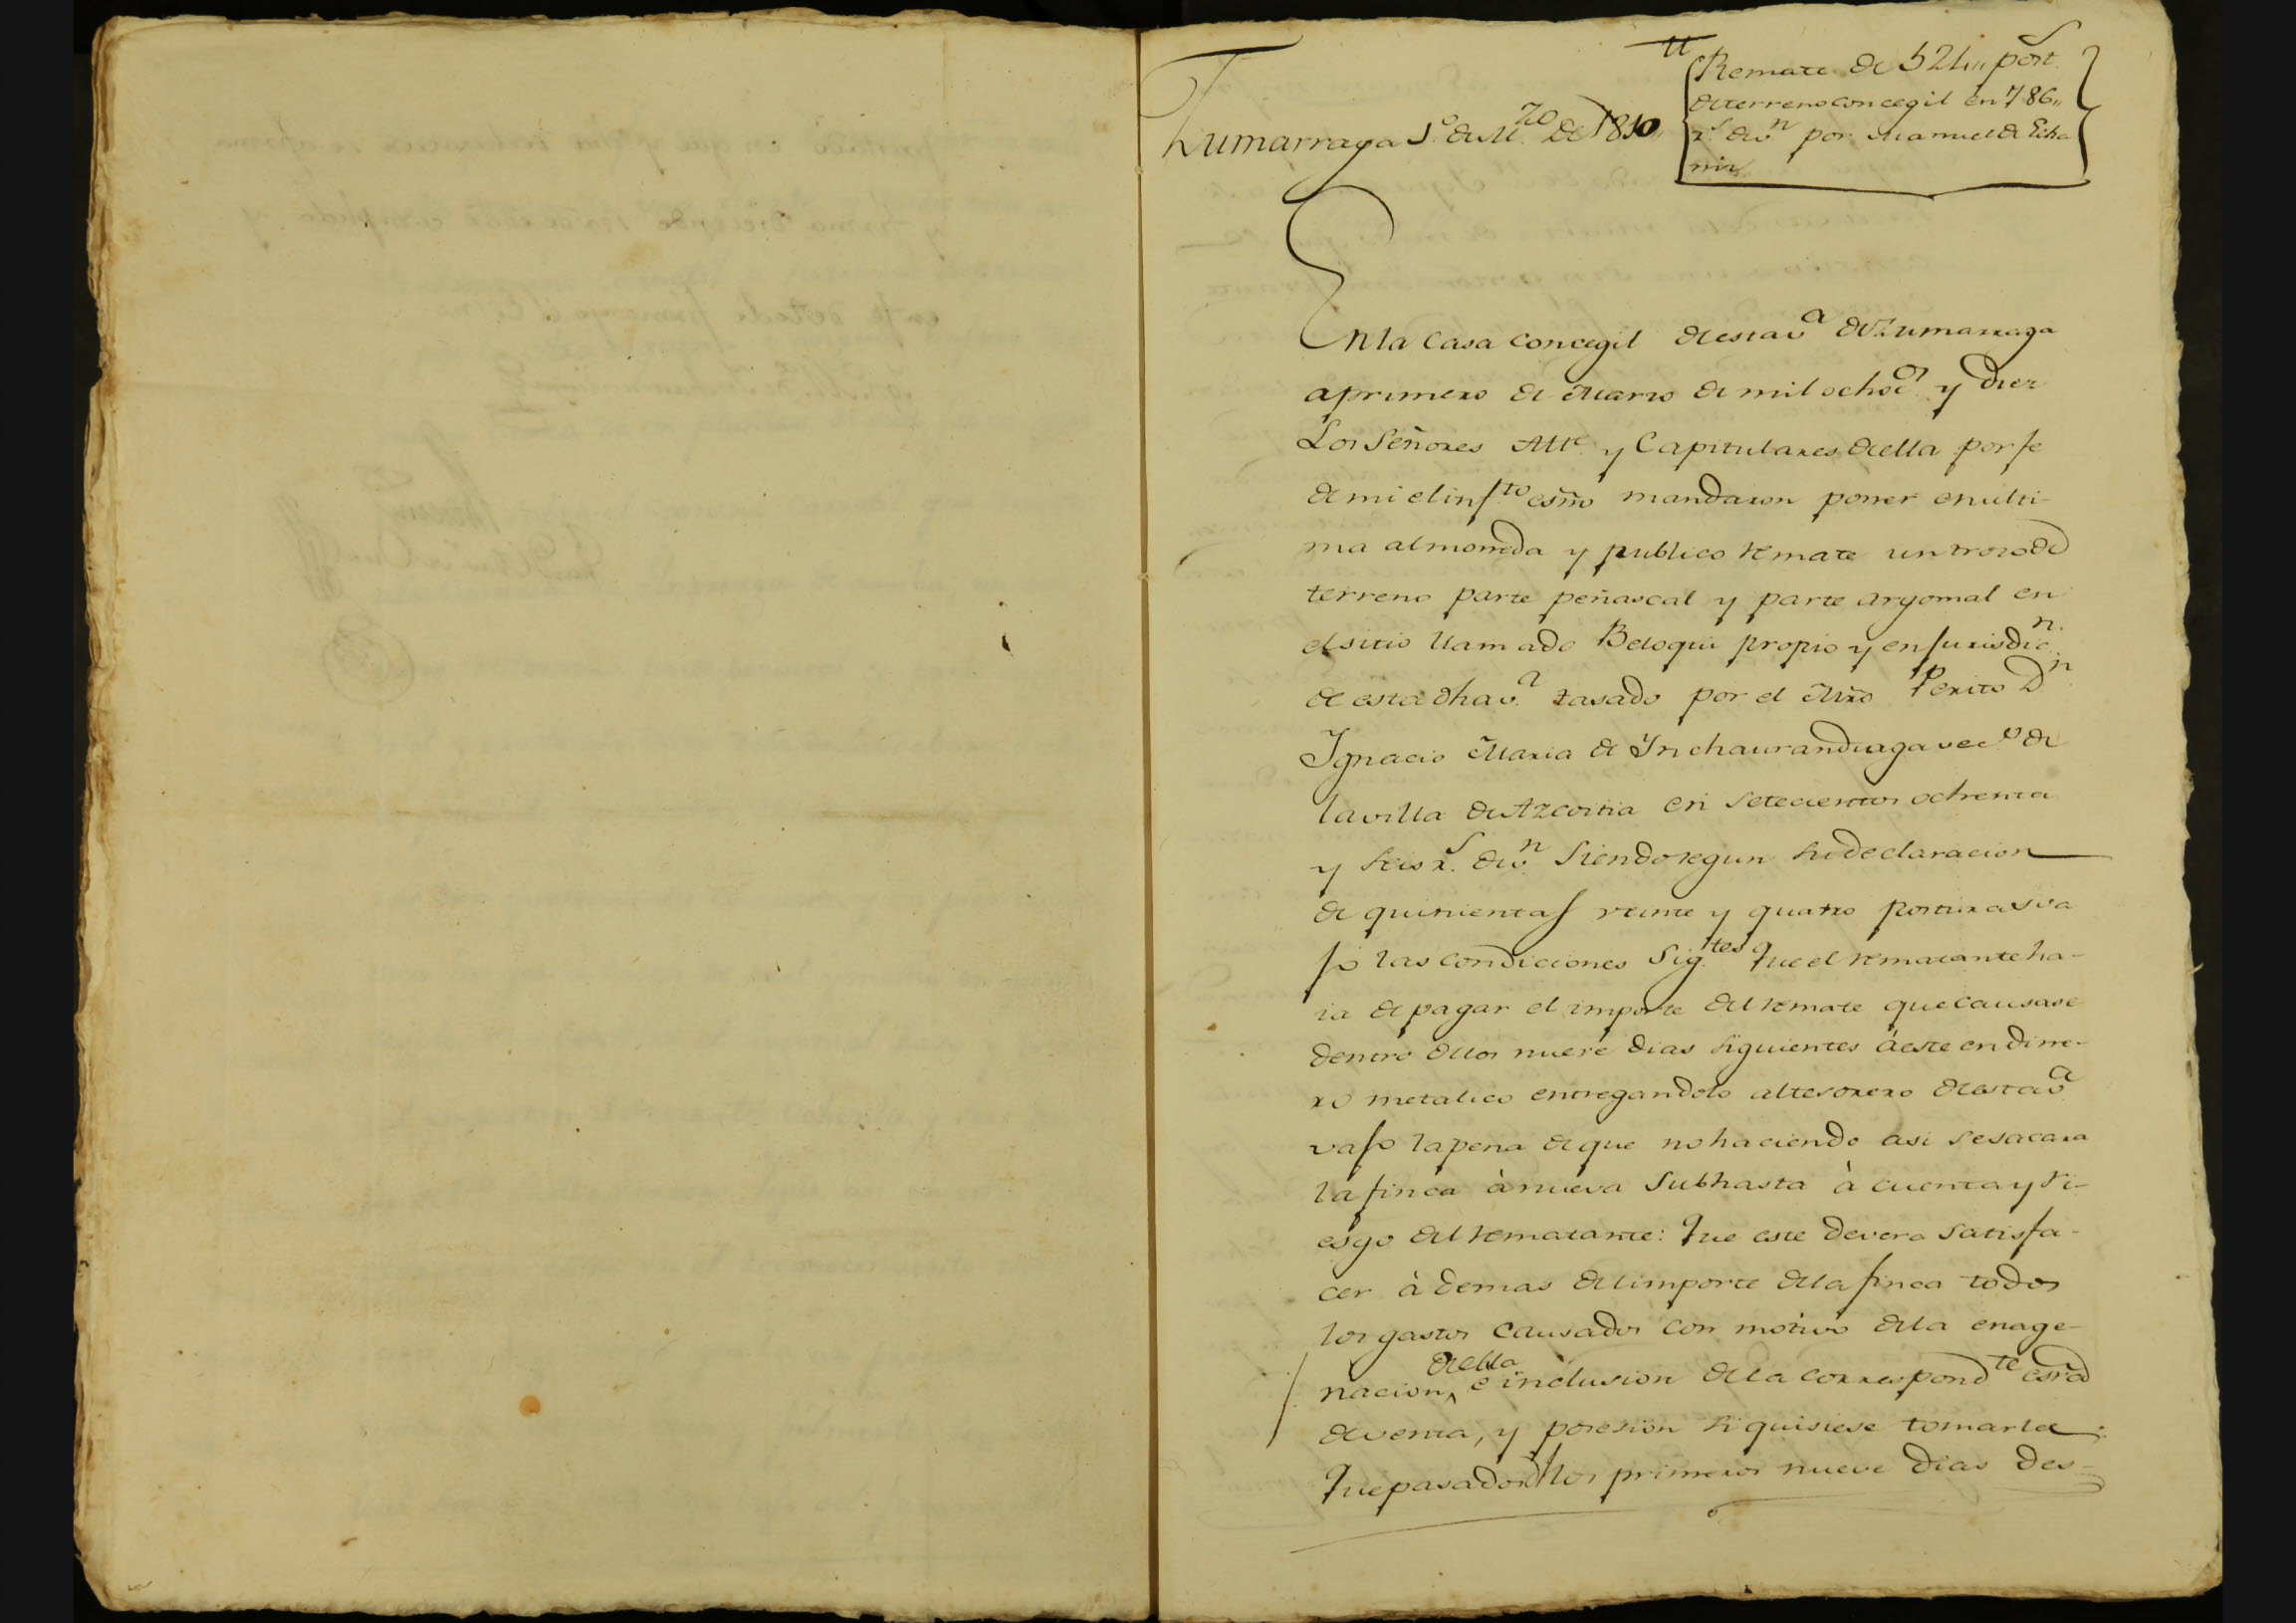 Zumarraga 1.º de M.zo de 1810,,
Remate de 524,, post.s
de terreno concegil en 786,,
r.s de v.n por Manuel de Echa
niz
En la Casa concegil de esta v.a de Zumarraga
a primero de Marzo de mil ochoc.os y diez
Los Señores Alc.e y Capitulares de ella por fe
de mi el inf.to esño mandaron poner en ulti-
ma almoneda y publico remate un trozo de
terreno parte peñascal y parte argomal en
el sitio llamado Beloqui propio y en jurisdic.n
de esta dha v.a tasado por el Mro Perito D.n
Ignacio Maria de Ynchaurandiaga vec.o de
la villa de Azcoitia en setecientos ochenta
y seis r.s de v.n siendo segun su declaracion
de quinientas veinte y quatro posturas va
jo las condiciones sig.tes Que el rematante ha-
ia de pagar el importe del remate que causase
dentro de los nueve dias siguientes à este en dine-
ro metalico entregandolo al tesorero de esta v.a
vajo la pena de que no haciendo asi se sacara
la finca à nueva subhasta à cuenta y ri-
esgo del rematante: Que este devera satisfa-
cer àdemas del importe de la finca todos
los gastos causados con motivo de la enage-
nacion de ella è inclusion de la correspond.te esrã
de venta, y posesion si quisiese tomarla:
Que pasados los primeros nueve dias des-